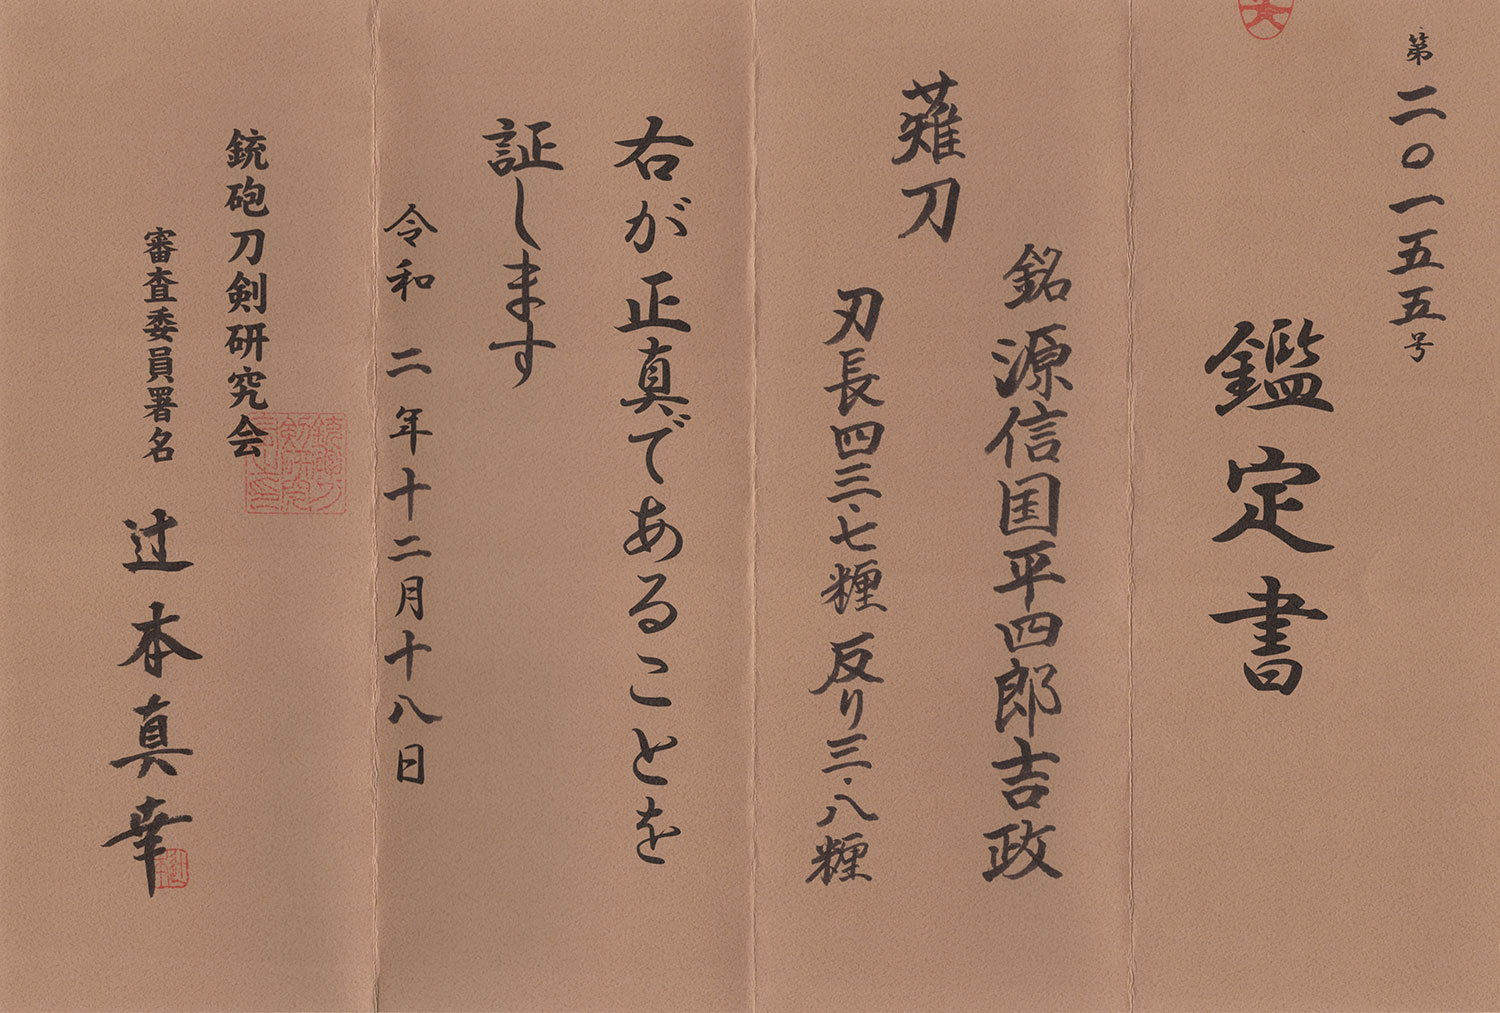 第二〇一五五号
鑑定書
薙刀
銘 源信国平四郎吉政
刃長四三・七糎 反り三・八糎
右が正真であることを
証します
令和二年十二月十八日
銃砲刀剣研究会
審査委員署名 辻本真幸